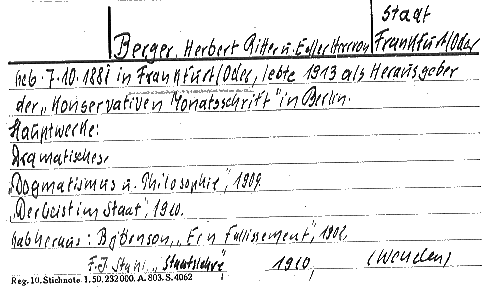 Stadt
Berger, Herbert Ritter u. Edler Herr von Frankfurt/Oder
geb. 7.10.1881 in Frankfurt/Oder, lebte 1913 als Herausgeber
der „Konservativen Monatsschrift" in Berlin.
Hauptwerke:
Dramatisches,
„Dogmatismus u. Philosophie", 1909.
„Der Geist im Staat", 1910.
gab heraus: Björnson, „Ein Fallissement", 1902,
F. J. Stahl, „Staatslehre", 1910, (Wenden)
Reg. 10. Stichnote. 1. 50. 232000. A. 803. S. 4062